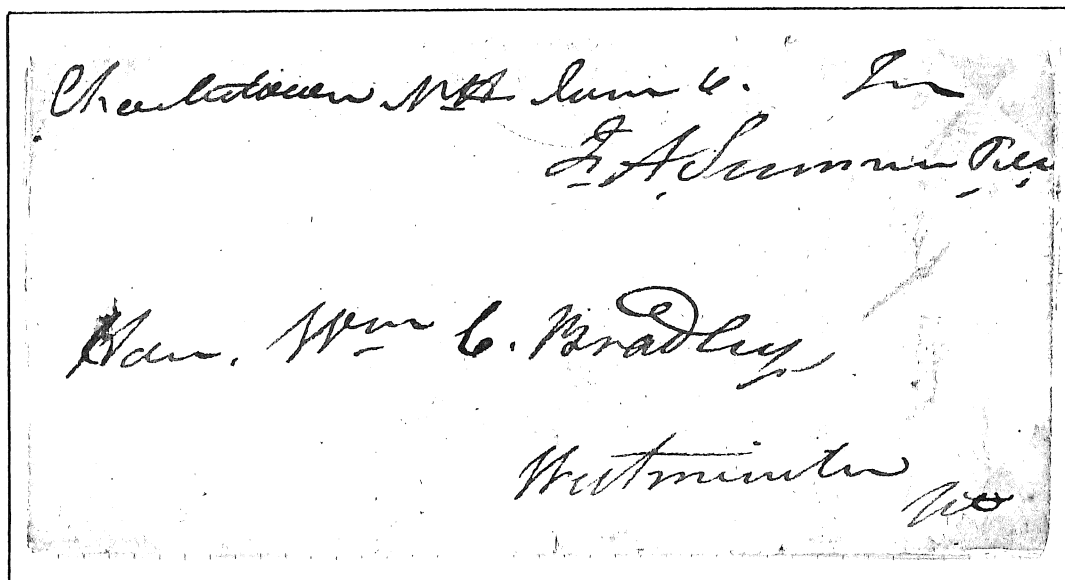 Charlestown NH June 6.
F. A. Sumner
Hon. Wm C. Bradley,
Westminster
Vt